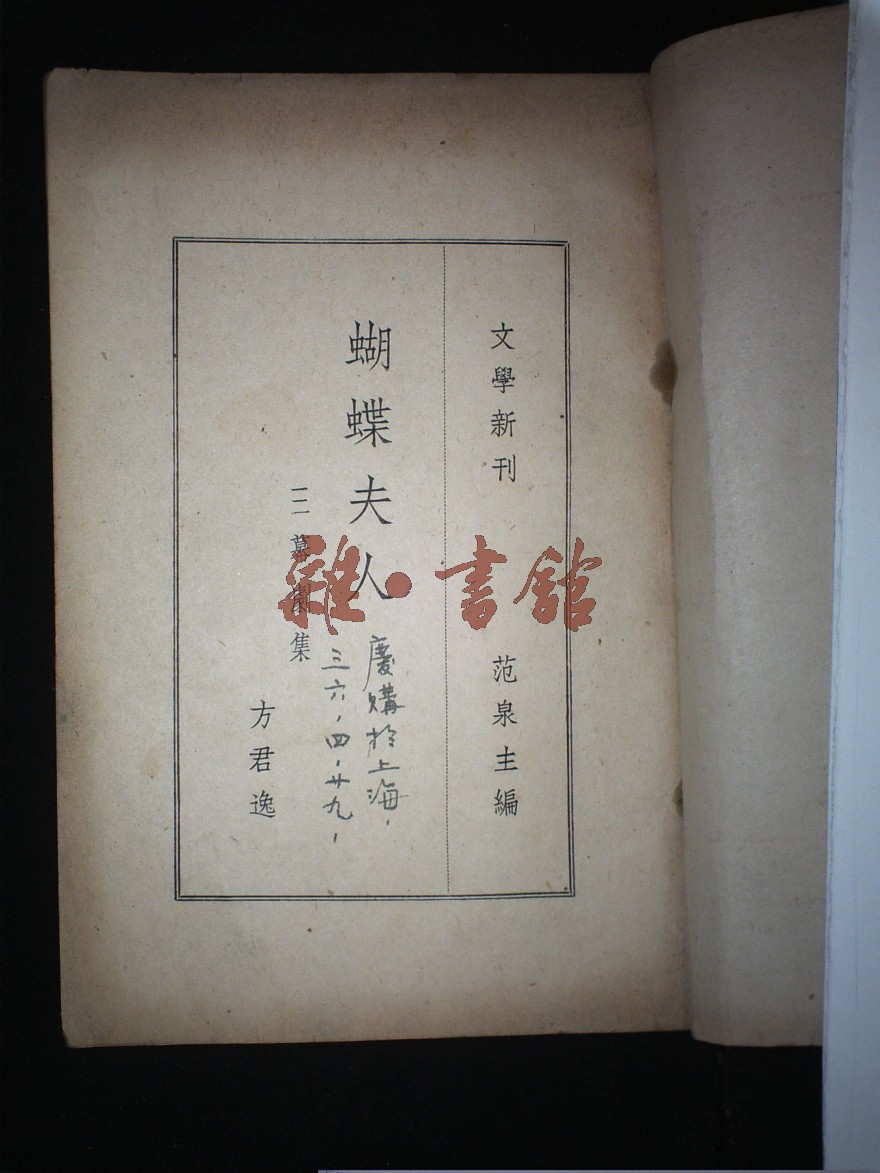 文學新刊
范泉主編
蝴蝶夫人
三幕劇集
方君逸
慶購於上海，
三六，四，廿九，
雜·書館